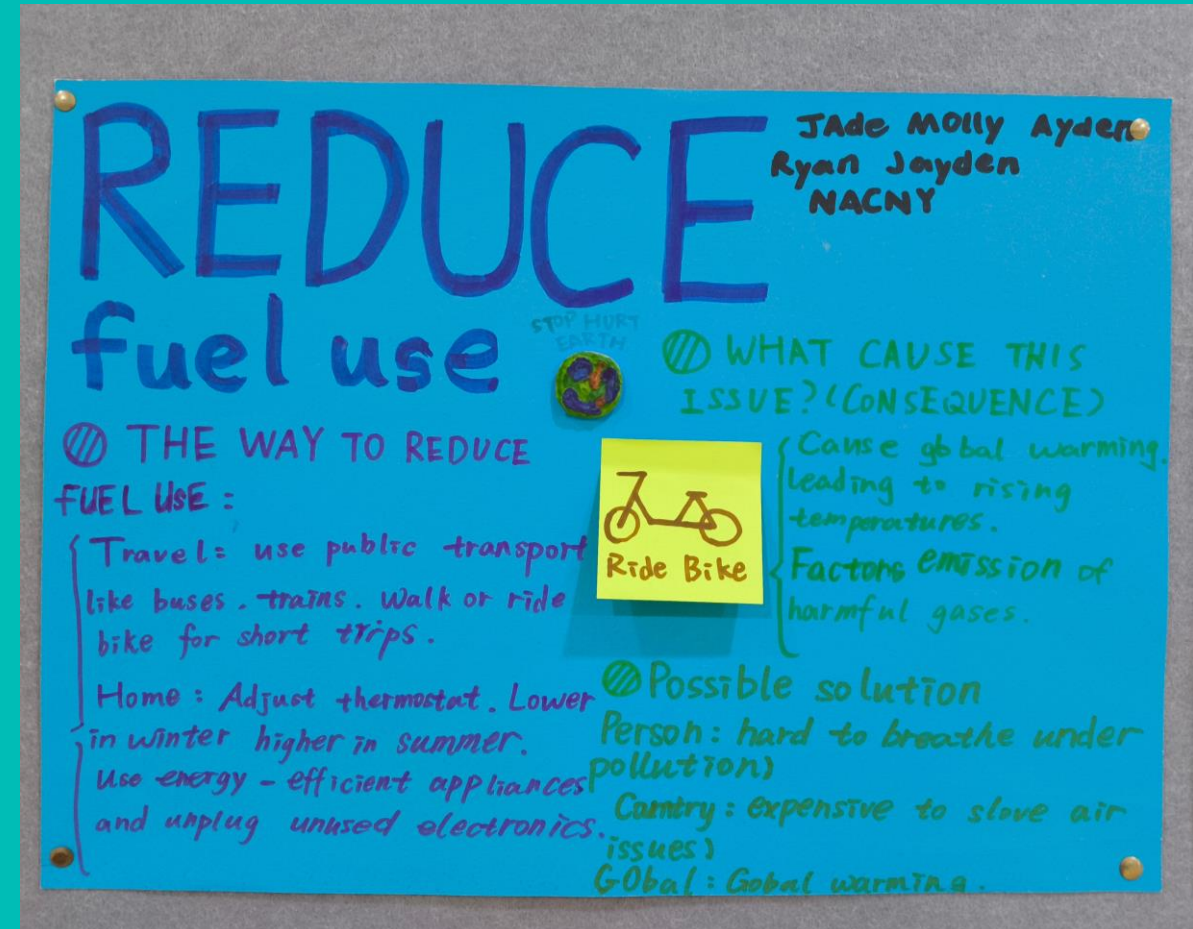 REDUCE
fuel use
JAde Molly Ayden
Ryan Jayden
NACNY
STOP HURT
EARTH
THE WAY TO REDUCE
FUEL USE :
Travel: use public transport
like buses. trains. Walk or ride
bike for short trips.
Home : Adjust thermostat. Lower
in winter higher in summer.
Use energy - efficient appliances
and unplug unused electronics.
Ride Bike
WHAT CAUSE THIS
ISSUE? (CONSEQUENCE)
Cause global warming.
leading to rising
temperatures.
Factors emission of
harmful gases.
Possible solution
Person : hard to breathe under
pollution)
Country : expensive to slove air
issues)
GObal : Gobal warming.